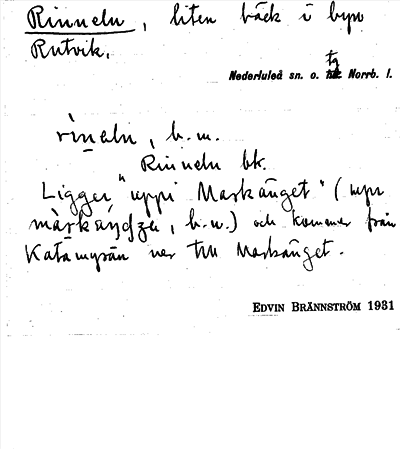 Rinneln, liten bäck i byn
Rutvik.
tg
Nederluleå sn. o. Norrb. l.
rineln, b.m.
Rinneln bk.
Ligger "uppi Markänget" (uppi
b.m.) och kommer från
Katamyrän ner till Markänget.
EDVIN BRÄNNSTRÖM 1931